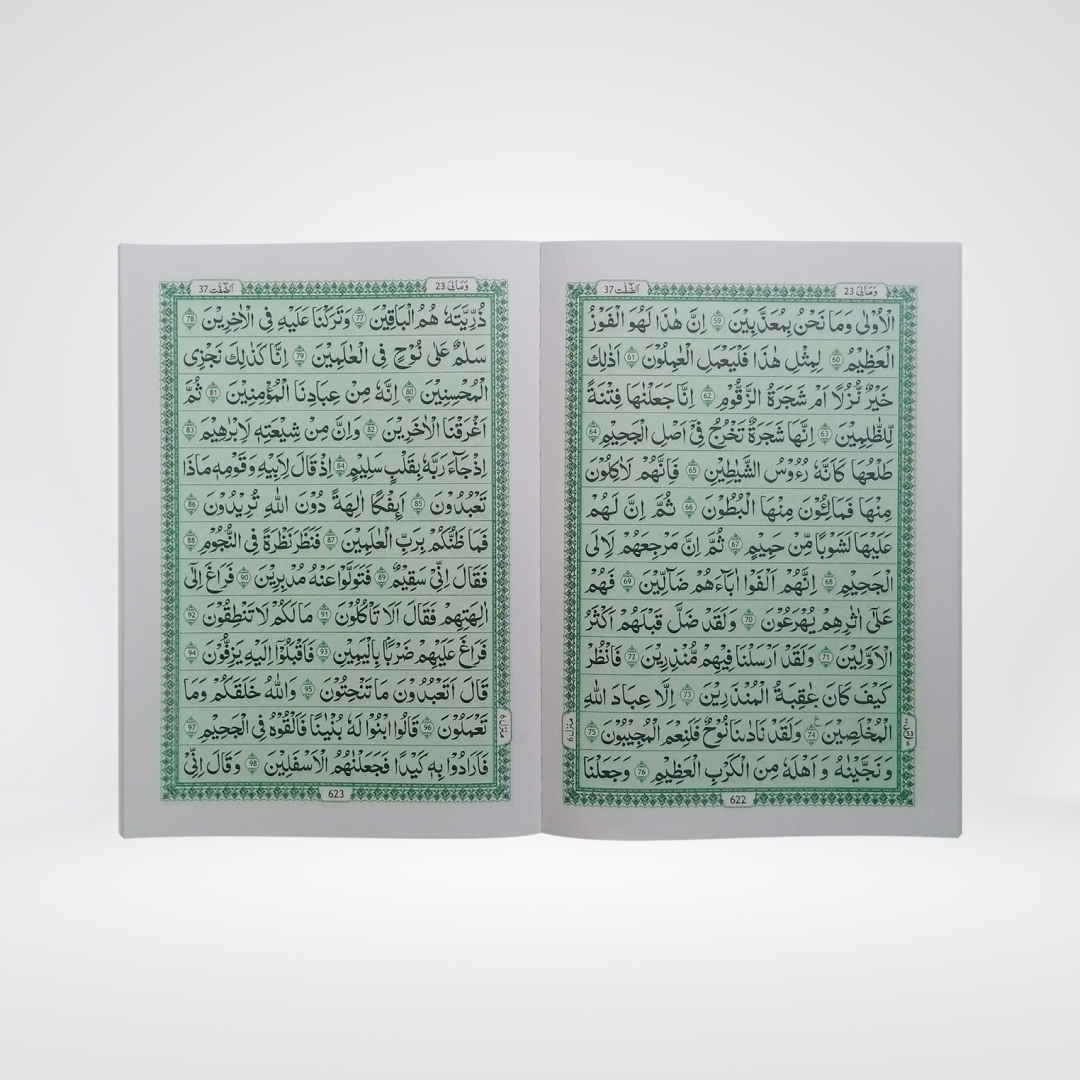 وَمَالِىَ 23
اَلصّٰٓفّٰت 37
الْاُوْلٰى وَمَا نَحْنُ بِمُعَذَّبِيْنَ 59 اِنَّ هٰذَا لَهُوَ الْفَوْزُ
الْعَظِيْمُ 60 لِمِثْلِ هٰذَا فَلْيَعْمَلِ الْعٰمِلُوْنَ 61 اَذٰلِكَ
خَيْرٌ نُّزُلًا اَمْ شَجَرَةُ الزَّقُّوْمِ 62 اِنَّا جَعَلْنٰهَا فِتْنَةً
لِّلظّٰلِمِيْنَ 63 اِنَّهَا شَجَرَةٌ تَخْرُجُ فِيْٓ اَصْلِ الْجَحِيْمِ 64
طَلْعُهَا كَاَنَّهٗ رُءُوْسُ الشَّيٰطِيْنِ 65 فَاِنَّهُمْ لَاٰكِلُوْنَ
مِنْهَا فَمَالِـُٔوْنَ مِنْهَا الْبُطُوْنَ 66 ثُمَّ اِنَّ لَهُمْ
عَلَيْهَا لَشَوْبًا مِّنْ حَمِيْمٍ 67 ثُمَّ اِنَّ مَرْجِعَهُمْ لَاِلَى
الْجَحِيْمِ 68 اِنَّهُمْ اَلْفَوْا اٰبَآءَهُمْ ضَآلِّيْنَ 69 فَهُمْ
عَلٰٓى اٰثٰرِهِمْ يُهْرَعُوْنَ 70 وَلَقَدْ ضَلَّ قَبْلَهُمْ اَكْثَرُ
الْاَوَّلِيْنَ 71 وَلَقَدْ اَرْسَلْنَا فِيْهِمْ مُّنْذِرِيْنَ 72 فَانْظُرْ
كَيْفَ كَانَ عَاقِبَةُ الْمُنْذَرِيْنَ 73 اِلَّا عِبَادَ اللّٰهِ
الْمُخْلَصِيْنَ 74 وَلَقَدْ نَادٰىنَا نُوْحٌ فَلَنِعْمَ الْمُجِيْبُوْنَ 75
وَنَجَّيْنٰهُ وَاَهْلَهٗ مِنَ الْكَرْبِ الْعَظِيْمِ 76 وَجَعَلْنَا
منزل 6
622
وَمَالِىَ 23
اَلصّٰٓفّٰت 37
ذُرِّيَّتَهٗ هُمُ الْبَاقِيْنَ 77 وَتَرَكْنَا عَلَيْهِ فِى الْاٰخِرِيْنَ 78
سَلٰمٌ عَلٰى نُوْحٍ فِى الْعٰلَمِيْنَ 79 اِنَّا كَذٰلِكَ نَجْزِى
الْمُحْسِنِيْنَ 80 اِنَّهٗ مِنْ عِبَادِنَا الْمُؤْمِنِيْنَ 81 ثُمَّ
اَغْرَقْنَا الْاٰخَرِيْنَ 82 وَاِنَّ مِنْ شِيْعَتِهٖ لَاِبْرٰهِيْمَ 83
اِذْ جَآءَ رَبَّهٗ بِقَلْبٍ سَلِيْمٍ 84 اِذْ قَالَ لِاَبِيْهِ وَقَوْمِهٖ مَاذَا
تَعْبُدُوْنَ 85 اَئِفْكًا اٰلِهَةً دُوْنَ اللّٰهِ تُرِيْدُوْنَ 86
فَمَا ظَنُّكُمْ بِرَبِّ الْعٰلَمِيْنَ 87 فَنَظَرَ نَظْرَةً فِى النُّجُوْمِ 88
فَقَالَ اِنِّيْ سَقِيْمٌ 89 فَتَوَلَّوْا عَنْهُ مُدْبِرِيْنَ 90 فَرَاغَ اِلٰٓى
اٰلِهَتِهِمْ فَقَالَ اَلَا تَاْكُلُوْنَ 91 مَا لَكُمْ لَا تَنْطِقُوْنَ 92
فَرَاغَ عَلَيْهِمْ ضَرْبًۢا بِالْيَمِيْنِ 93 فَاَقْبَلُوْٓا اِلَيْهِ يَزِفُّوْنَ 94
قَالَ اَتَعْبُدُوْنَ مَا تَنْحِتُوْنَ 95 وَاللّٰهُ خَلَقَكُمْ وَمَا
تَعْمَلُوْنَ 96 قَالُوا ابْنُوْا لَهٗ بُنْيَانًا فَاَلْقُوْهُ فِى الْجَحِيْمِ 97
فَاَرَادُوْا بِهٖ كَيْدًا فَجَعَلْنٰهُمُ الْاَسْفَلِيْنَ 98 وَقَالَ اِنِّيْ
منزل 6
623